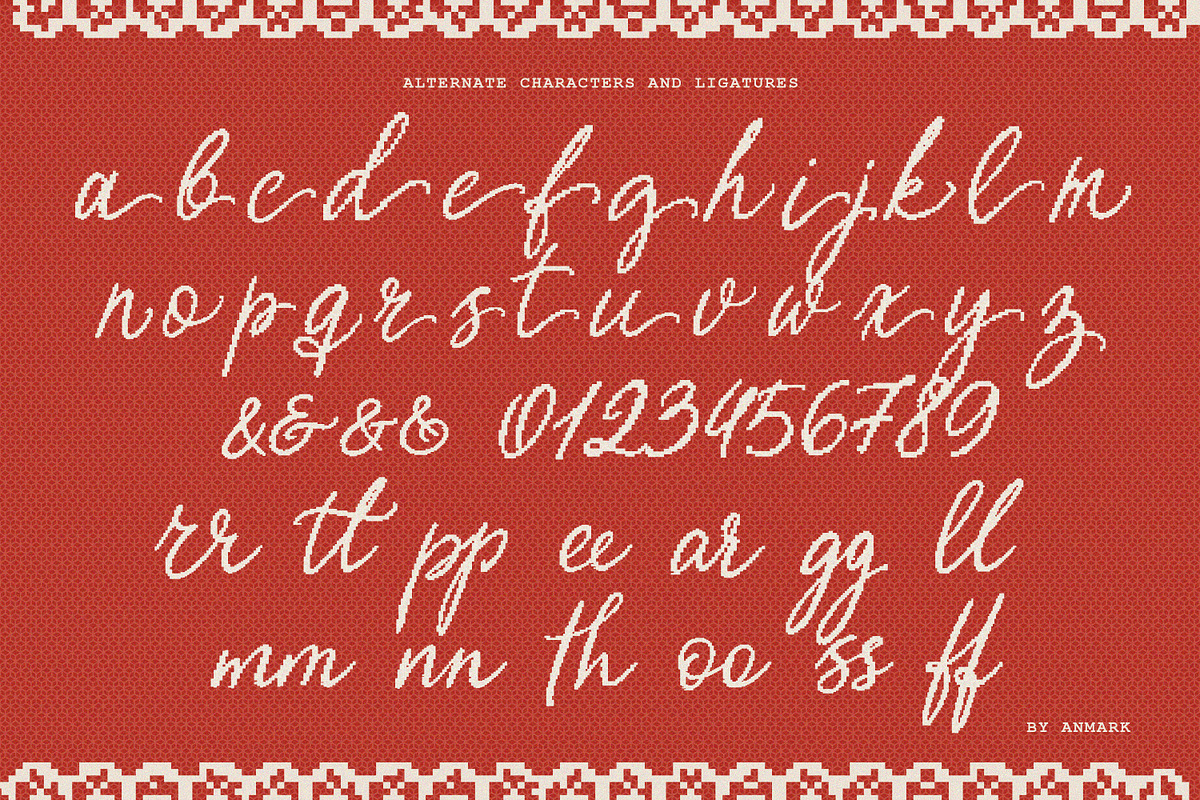 ALTERNATE CHARACTERS AND LIGATURES
a b c d e f g h i j k l m
n o p q r s t u v w x y z
& & & & 0 1 2 3 4 5 6 7 8 9
rr tt pp ee ar gg ll
mm nn th oo ss ff
BY ANMARK